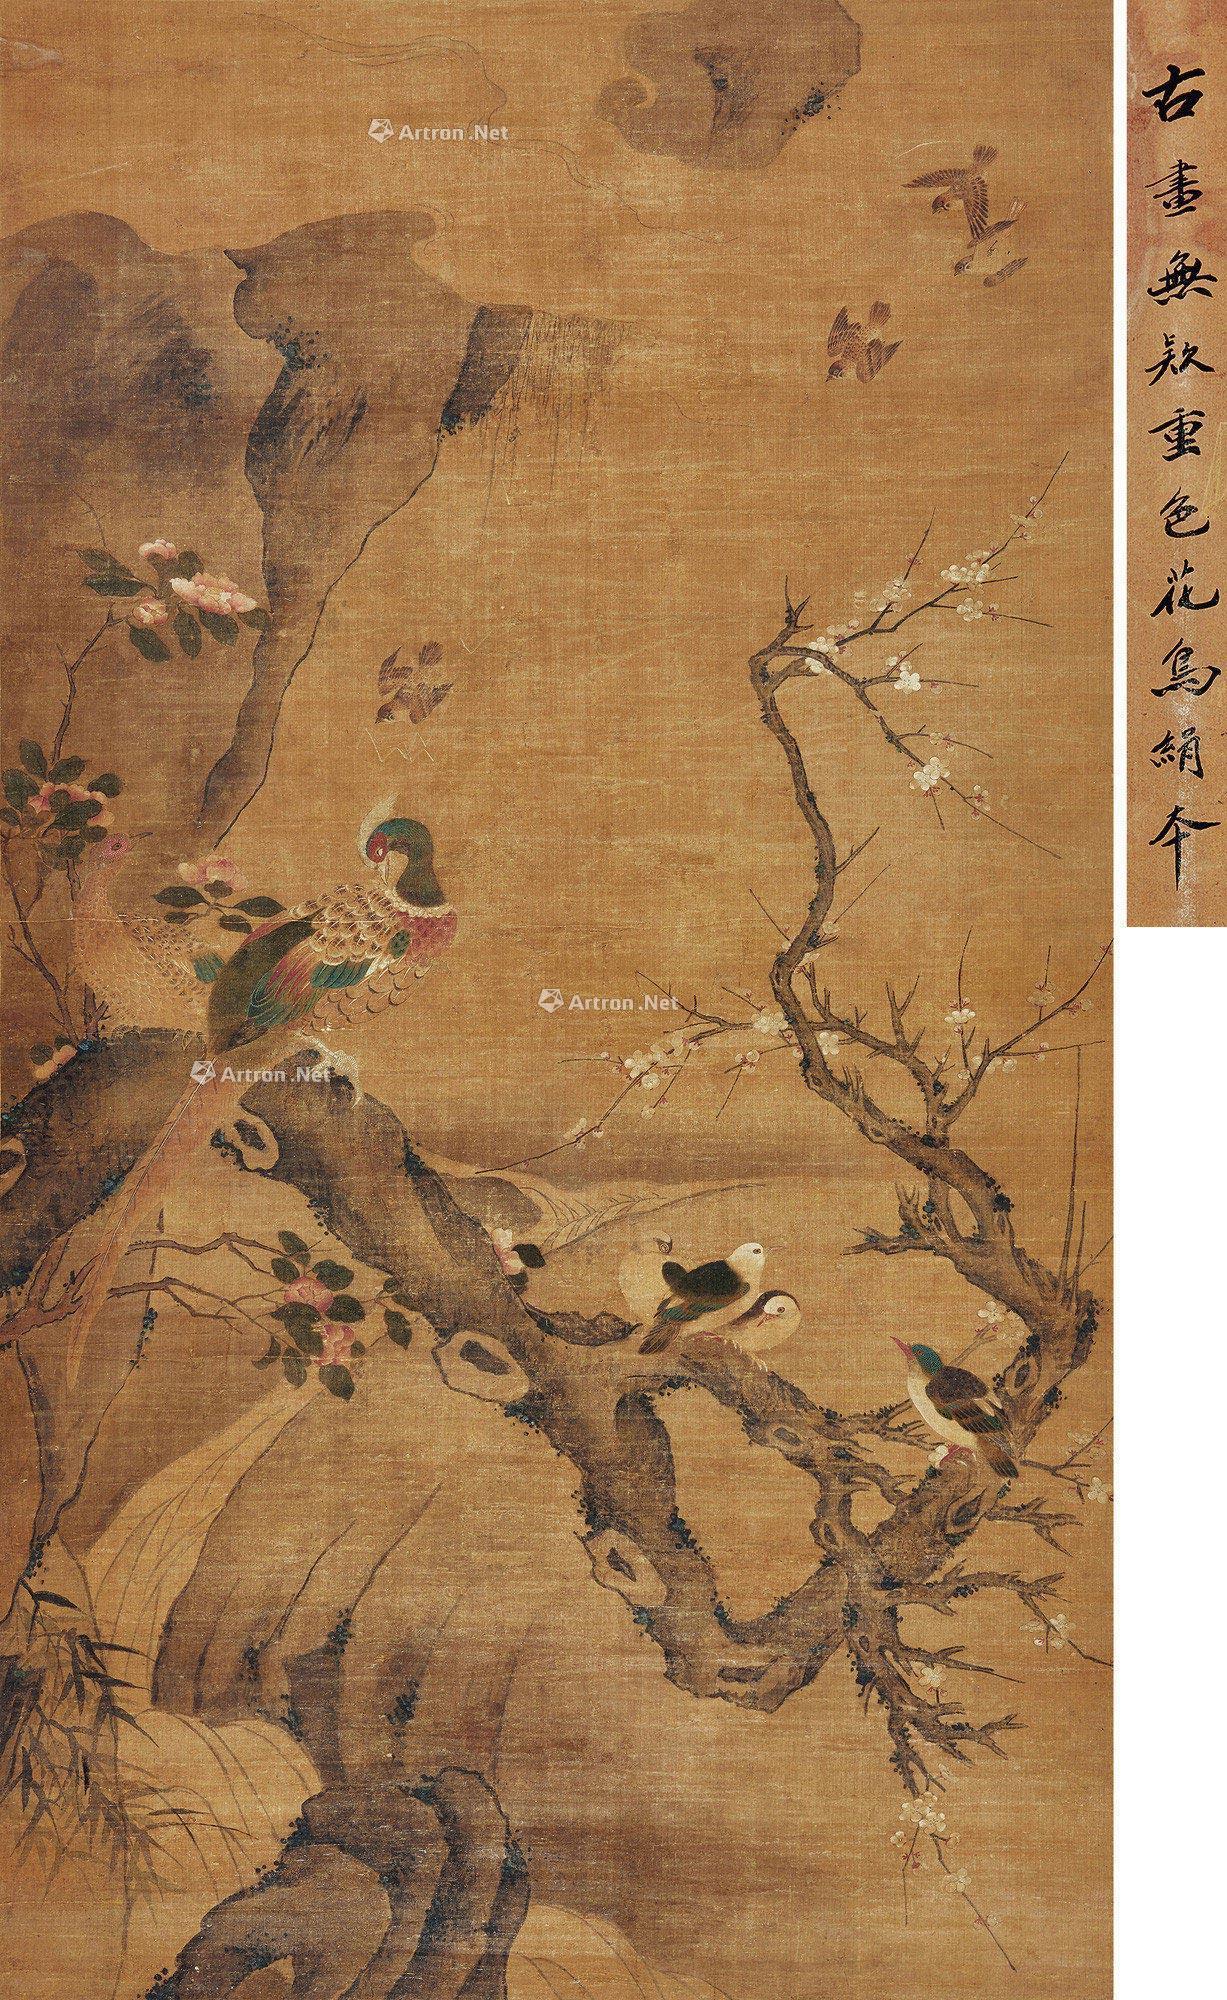 古畫無款重色花鳥絹本
Artron.Net
Artron.Net
Artron.Net